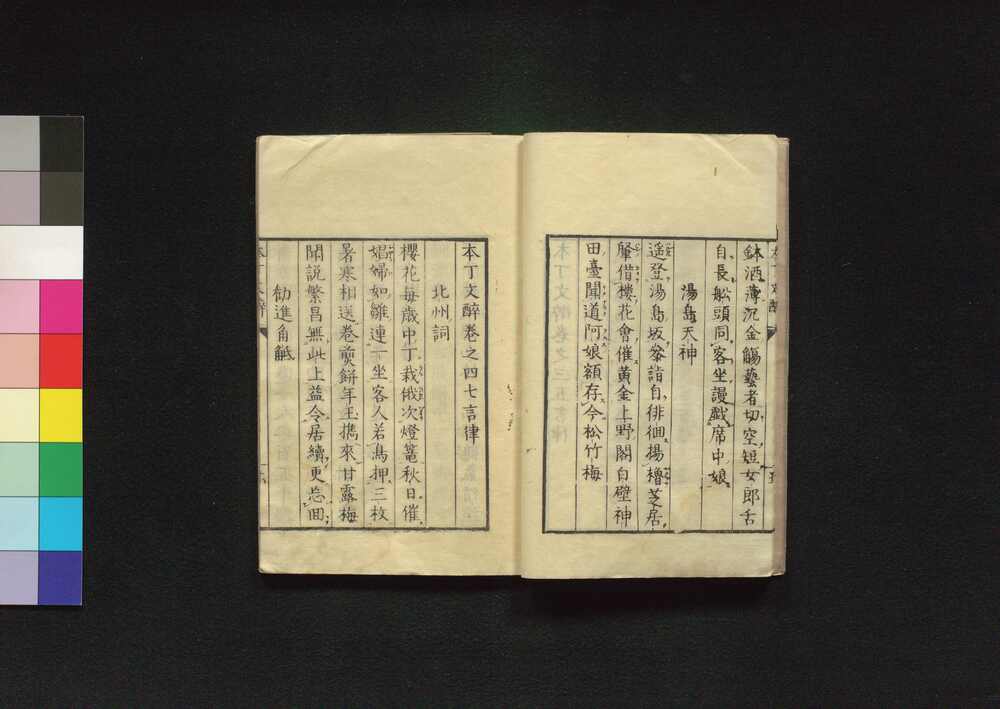 鉢洒薄沉金觴藝者切空短女郎舌
自長舩頭同客坐謾戯席中娘
湯島天神
遥登湯島坂參詣自徘徊揚櫓芝居
肇借樓花會催黄金上野閣白壁神
田臺聞道阿娘額存今松竹梅
本丁文醉卷之四七言律
北州詞
櫻花毎歳中丁栽俄次燈篭秋日催
娼婦如雛連一坐客人若鳥押三枚
暑寒相送卷煎餅年玉携來甘露梅
聞説繁昌無此上益令居續更忘囬
勧進角觝